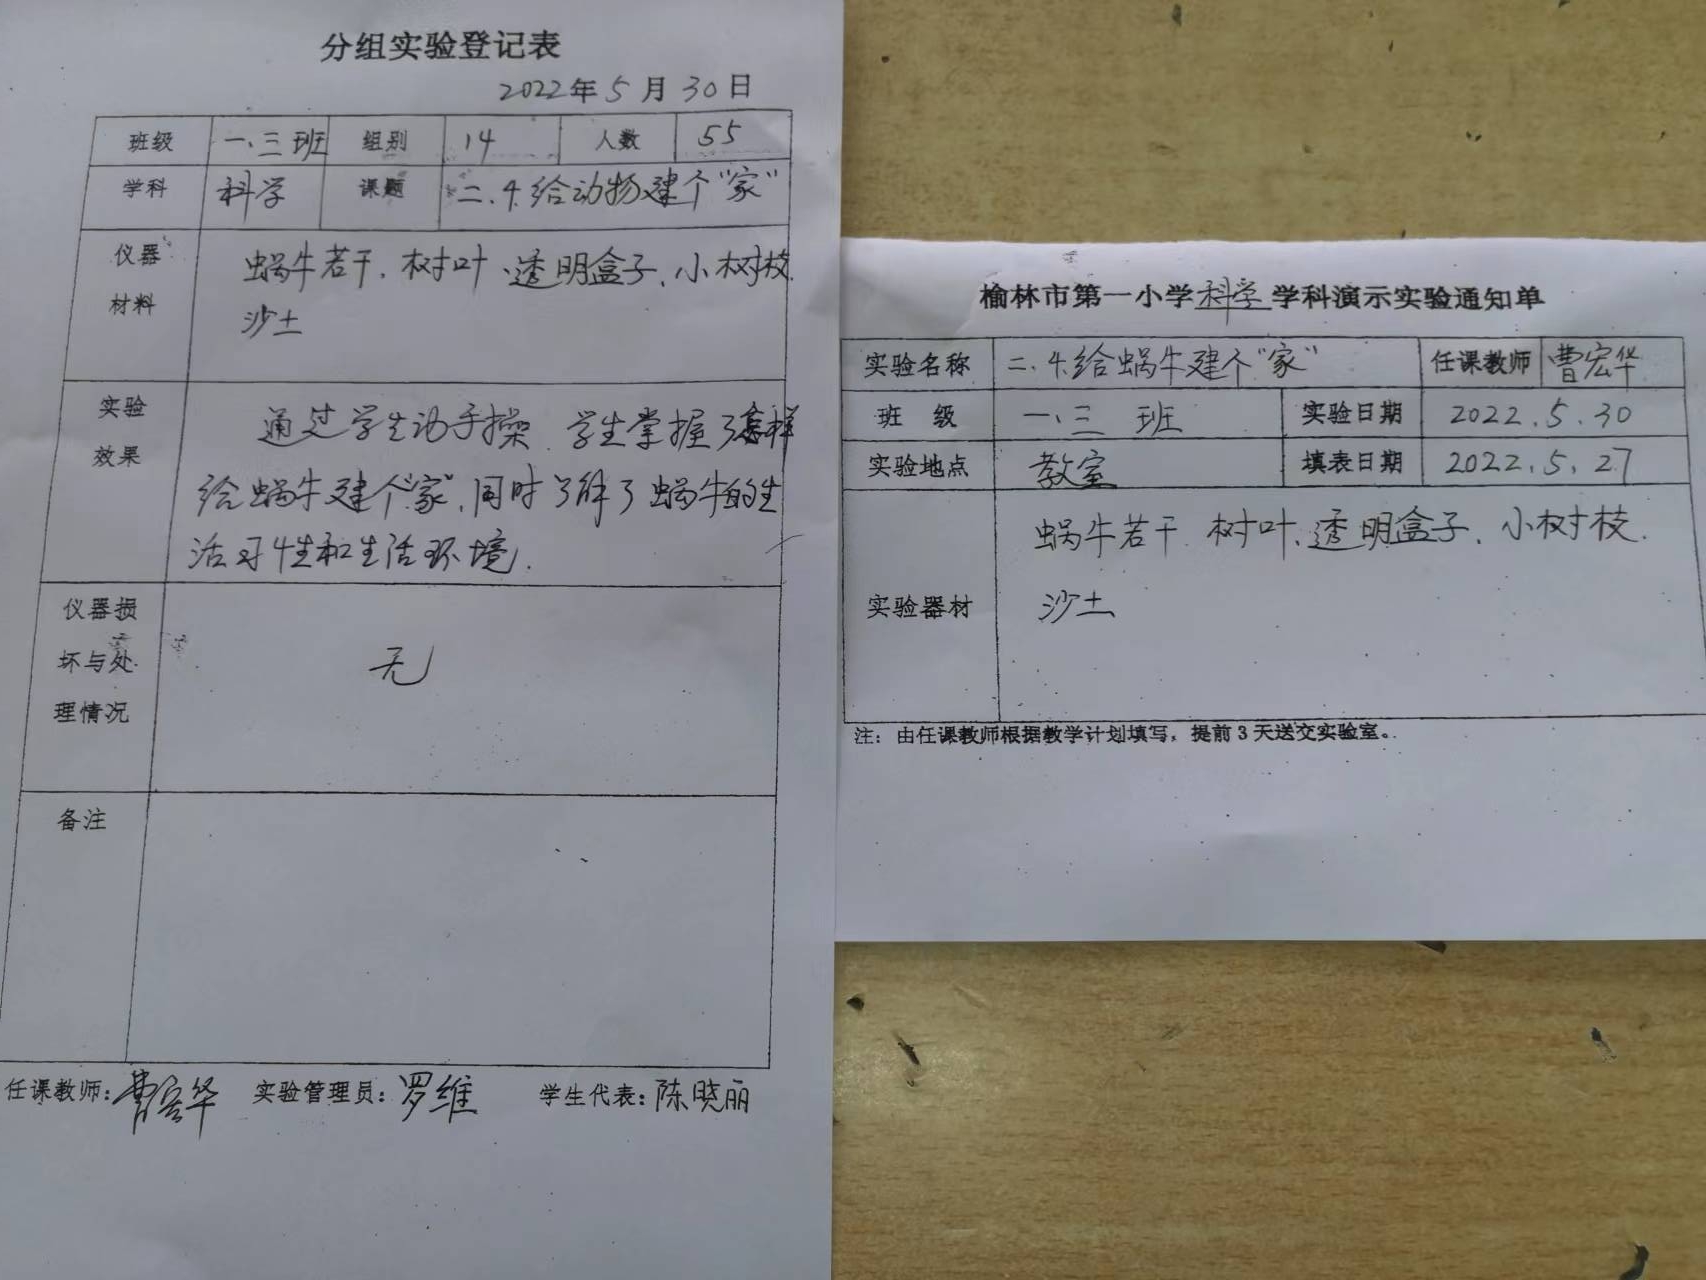 分组实验登记表
2022年5月30日
班级 一.三班 组别 14 人数 55
学科 科学 课题 二.4.给动物建个"家"
仪器
材料
蜗牛若干.树叶、透明盒子、小树枝
沙土
实验
效果
通过学生动手操.学生掌握了怎样
给蜗牛建个"家",同时了解了蜗牛的生
活习性和生活环境.
仪器损
坏与处
理情况
无
备注
任课教师:曹宏华 实验管理员:罗维 学生代表:陈晓丽
榆林市第一小学科学学科演示实验通知单
实验名称 二.4.给蜗牛建个"家" 任课教师 曹宏华
班 级 一.三 班 实验日期 2022.5.30
实验地点 教室 填表日期 2022.5.27
实验器材
蜗牛若干 树叶、透明盒子、小树枝.
沙土
注:由任课教师根据教学计划填写,提前3天送交实验室。